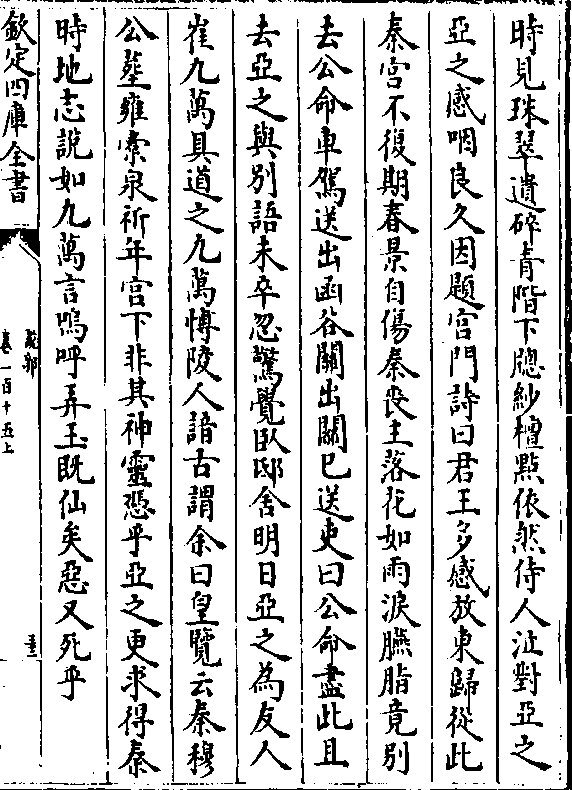 時見珠翠遺碎青階下窻紗檀㸃依然侍人泣對亞之
亞之感咽良久因題宫門詩曰君王多感放東歸從此
秦宫不復期春景自傷秦喪主落花如雨淚臙脂竟别
去公命車駕送出函谷關出關已送吏曰公命盡此且
去亞之與别語未卒忽驚覺臥邸舍明日亞之為友人
崔九萬具道之九萬愽陵人諳古謂余曰皇覽云秦穆
公塟雍橐泉祈年宫下非其神靈憑乎亞之更求得秦
時地志說如九萬言嗚呼弄玉既仙矣惡又死乎
欽定四庫全書
說郛
卷一百十五上